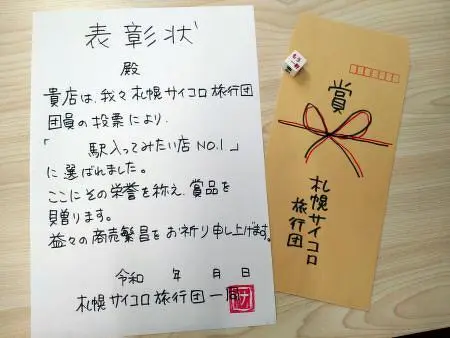 表彰状
殿
貴店は、我々札幌サイコロ旅行団
団員の投票により、
「　　駅入ってみたい店NO.1」
に選ばれました。
ここにその栄誉を称え、賞品を
贈ります。
益々の商売繁昌をお祈り申し上げます。
令和　年　月　日
札幌サイコロ旅行団一同
賞
札幌サイコロ
旅行団